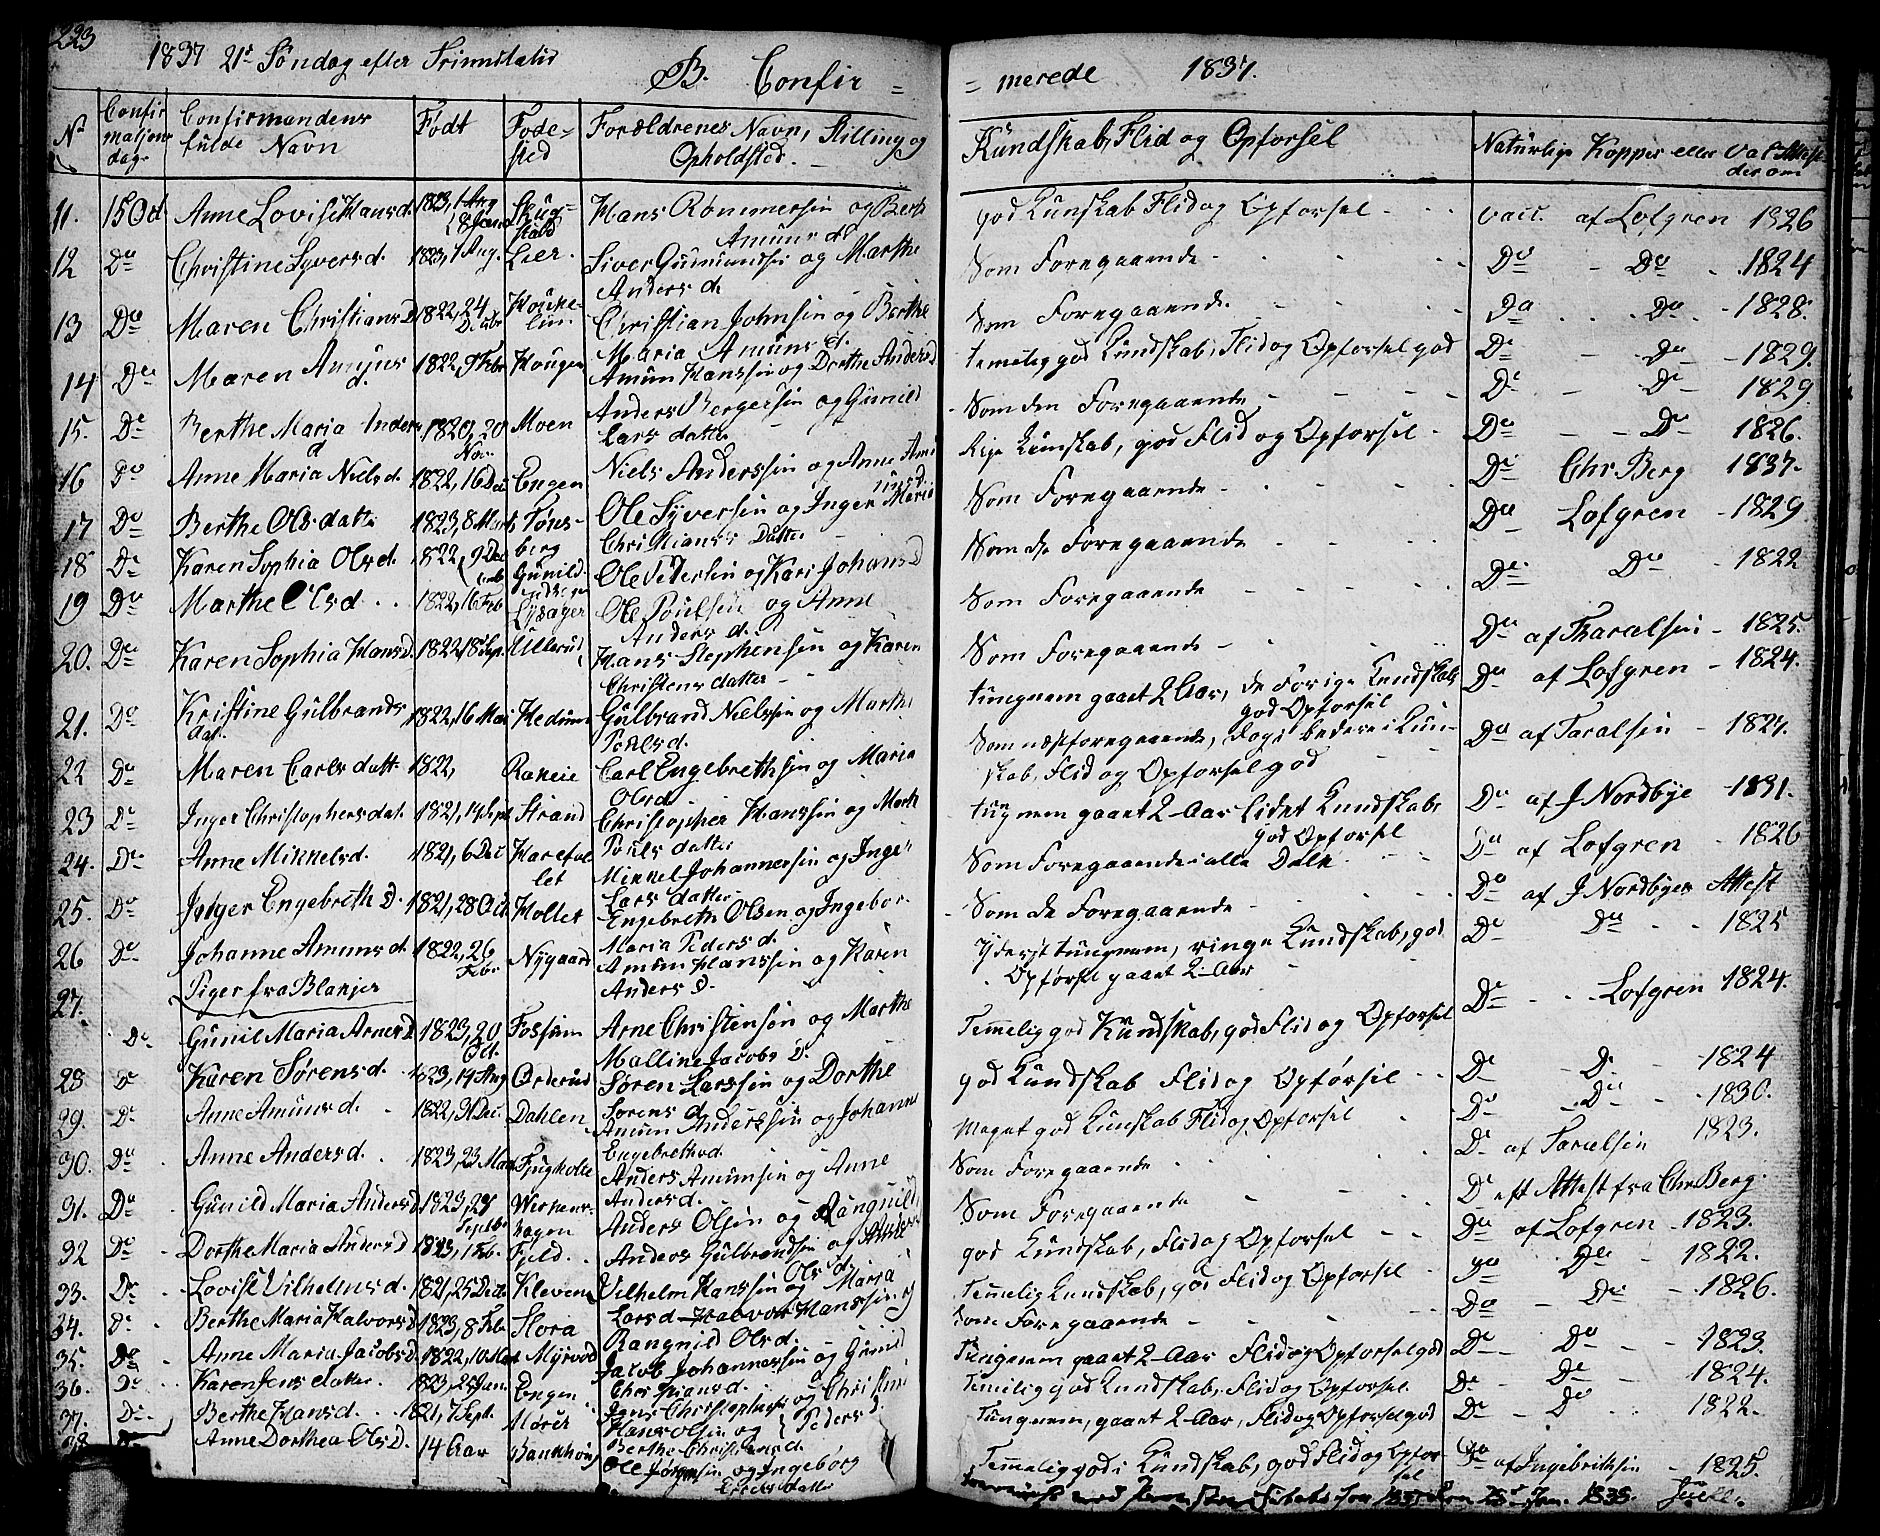 223
1837 21de Söndag efter Trinnitatis
B. Confir = = merede 1837.
No Confirmationsdag. Confirmandens fulde Navn Födt Fodested Forældrenes Navn, Stilling og Opholdsted. Kundskab, Flid og Opforsel Naturlige Kopper eller Vac. Attest derom
11. 15 Oct Anne Lovise Hansd. 1823, Hans Rommersen og Berthe Amunsd. god Kunskab Flid og Opforsel vacc. af Lofgren 1826
12 Do Christine Syversd. 1823, 1 Aug. Lier. Siver Gumundsen og Marthe Andersd. Som Foregaaende Do Do 1824
13 Do Maren Christians D. 1822, 24 Decbr Christian Johnsen og Berthe Maria Amunsd. Som Foregaaende. Do Do 1828.
14 Do Maren Amuns d. 1822, 9 Febr Hougen Amun Hanssen og Dorthe Andersd temelig god Kundskab, Flid og Opforsel god Do Do 1829.
15. Do Berthe Maria Anders d 1820, 20 Nov. Moen Anders Bergersen og Gunild Lars datter Som den Foregaaende Do Do 1829.
16 Do Anne Maria Nielsd. 1822, 16 Dec Engen Niels Anderssen og Anne Amunsd. Kunskab, god Flid og Opforsel Do Do 1826.
17 Do Berthe Olsdatter 1823, 8 Marts Tönsberg Ole Syversen og Inger Maria Christians Datter Som Foregaaende Do Chr. Berg 1837.
18 Do Karen Sophia Olsd. 1822, 9 Decemb Ole Pedersen og Kari Johansd Som de Foregaaende Do Lofgren 1829
19 Do Marthe Olsd. 1822, 16 Feb Lysager Ole Poulsen og Anne Andersd. Som Foregaaende Do Do 1822
20. Do Karen Sophia Hansd. 1822, 18 Sep. Ullerud Hans Stephensen og Karen Christensdatter Som Foregaaende Do af Tharalsen 1825.
21. Do Kristine Gulbrands dat. 1822, 16 Mai Hedum Gulbrand Nielssen og Marthe Poulsd. tungnem gaaet 2 Aar, de förige Kundskab god Opforsel Do af Lofgren 1824.
22 Do Maren Carlsdatt. 1822, Carl Engebrethsen og Maria Olsd. Som næstforegaaende, dog bedere i Kunskab, Flid og Opforsel god Do af Taralsen 1827.
23 Do Inger Christophersdat. 1821, 14 Sept Strand Christopher Hanssen og Marth Pouls datter tungnem gaaet 2 Aar lidet Kundskab, god Opforsel Do af J Nordbye 1831.
24. Do Anne Mikkelsd. 1821, 6 Dec Mikkel Johannessen og Inger Lars datter Som Foregaaende i alle Dele Do af Lofgren 1826
25. Do Inger Engebreth D. 1821, 28 Oct Holtet Engebreth Olsen og Ingebor Maria Pedersd. Som de Foregaaende Do af J Nordbyes Attest
26 Do Johanne Amunsd. 1822, 26 Febr Nygaard Amun Hanssen og Karen Anders D. Yderst tungnem, ringe Kundskab, god Opförsel gaaet 2 Aar Do Do 1825
Piger fra Blakjer
27. Do Gunil Maria Arnes D 1823, 20 Oct. Fossum Arne Christensen og Marthe Malline Jacobs D. Temmelig god Kundskab, god Flid og Opforsel Do Lofgren 1824.
28 Do Karen Sörensd. 1823, 14 Aug Orderud Sören Larssen og Dorthe Sorensd god Kundskab Flid og Opförsel Do Do 1824
29. Do Anne Amunsd. 1822, 31 Dec. Dahlen Amun Anderssen og Johanne Engebrethsd. Meget god Kunskab Flid og Opforsel Do Do 1830.
30. Do Anne Andersd. 1823, 23 Mar Anders Amunsen og Anne Andersd. Som Foregaaende Do af Taralsen 1823.
31. Do Gunild Maria Andersd 1823, Anders Olsen og Rangnild Som Foregaaende Do eft Attest fra Chr Berg.
32 Do Dorthe Maria Anders D 1823, 1 Feb. Fjeld Anders Gulbrandsen og Olsd. god Kundskab, Flid og Opforsel Do af Lofgren 1823.
33. Do Lovise Vilhelmsd. 1821, 25 Dec Kleven Vilhelm Hanssen og Maria Larsd Temmelig Kundskab, god Flid og Opforsel Do Do 1822.
34. Do Berthe Maria Halvorsd 1823, 8 Febr Flora Halvor Hanssen og Rangnild Olsd. Som Foregaaende Do Do 1826.
35. Do Anne Maria Jacobsd. 1822, 10 Myrvod Jacob Johannessen og Gunild Christiansd. Tungnem gaaet 2 Aar Flid og Opforsel god Do Do 1823.
36. Do Karen Jens datter 1823, 25 Jan. Engen Jens Christophersen og Christine Pedersd. Temelig god Kundskab, Flid og Opforsel Do Do 1824.
37. Do Berthe Hansd. 1821, 7 Sept. Hans Olsen og Berthe Christensd. Tungnem, gaaet 2 Aar, Flid og Opforsel god Do Do 1822.
38 Anne Dorthea Ols D. 14 Aar Ole Jörgensen og Ingeborg datter Temmelig god Kundskab, god Flid og Opforsel Do af Ingebriktsen 1825.
1838.